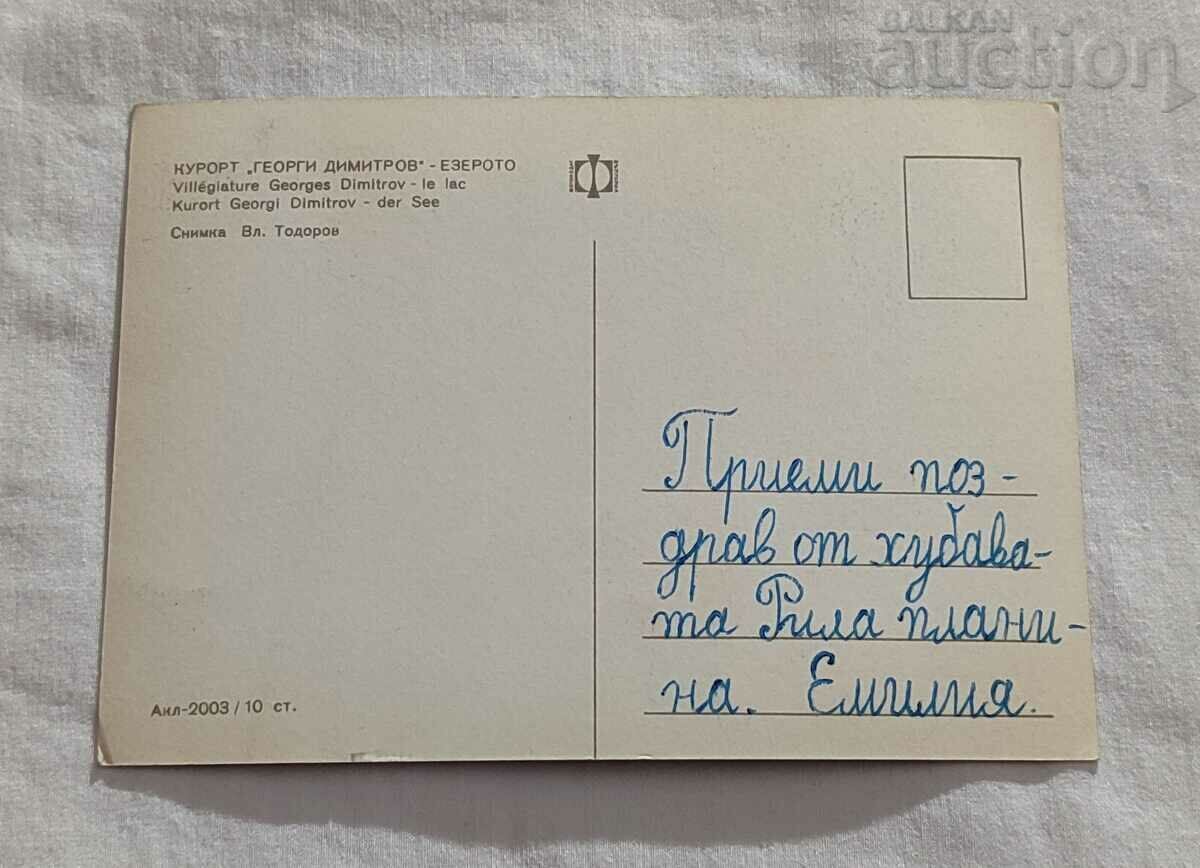 BALKAN
auction
КУРОРТ „ГЕОРГИ ДИМИТРОВ" - ЕЗЕРОТО
Villégiature Georges Dimitrov - le lac
Kurort Georgi Dimitrov - der See
Снимка Вл. Тодоров
Приеми поз-
драв от хубава-
та Рила плани-
на. Емилия.
Акл-2003 / 10 ст.